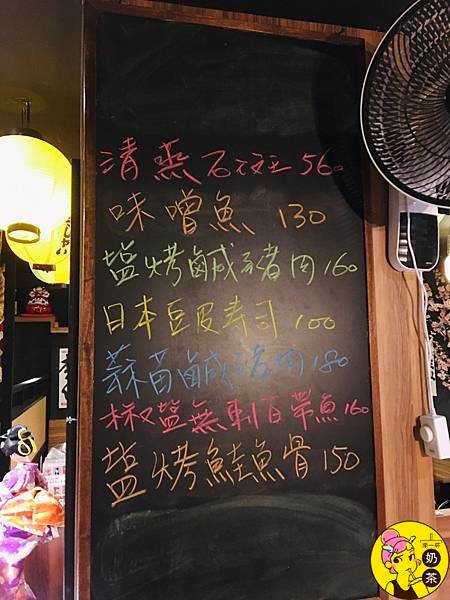 清蒸石斑 560
味噌魚 130
塩烤鹹豬肉 160
日本豆皮寿司 100
蒜苗鹹豬肉 180
椒塩無刺白帶魚 160
塩烤鮭魚骨 150
來一杯
奶
茶